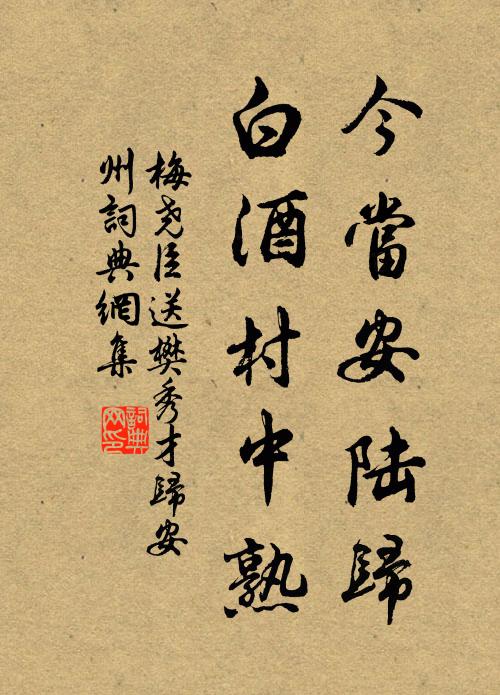 今當安陸歸
白酒村中熟
梅尧臣送樊秀才歸安
州詞典網集
詞典网印